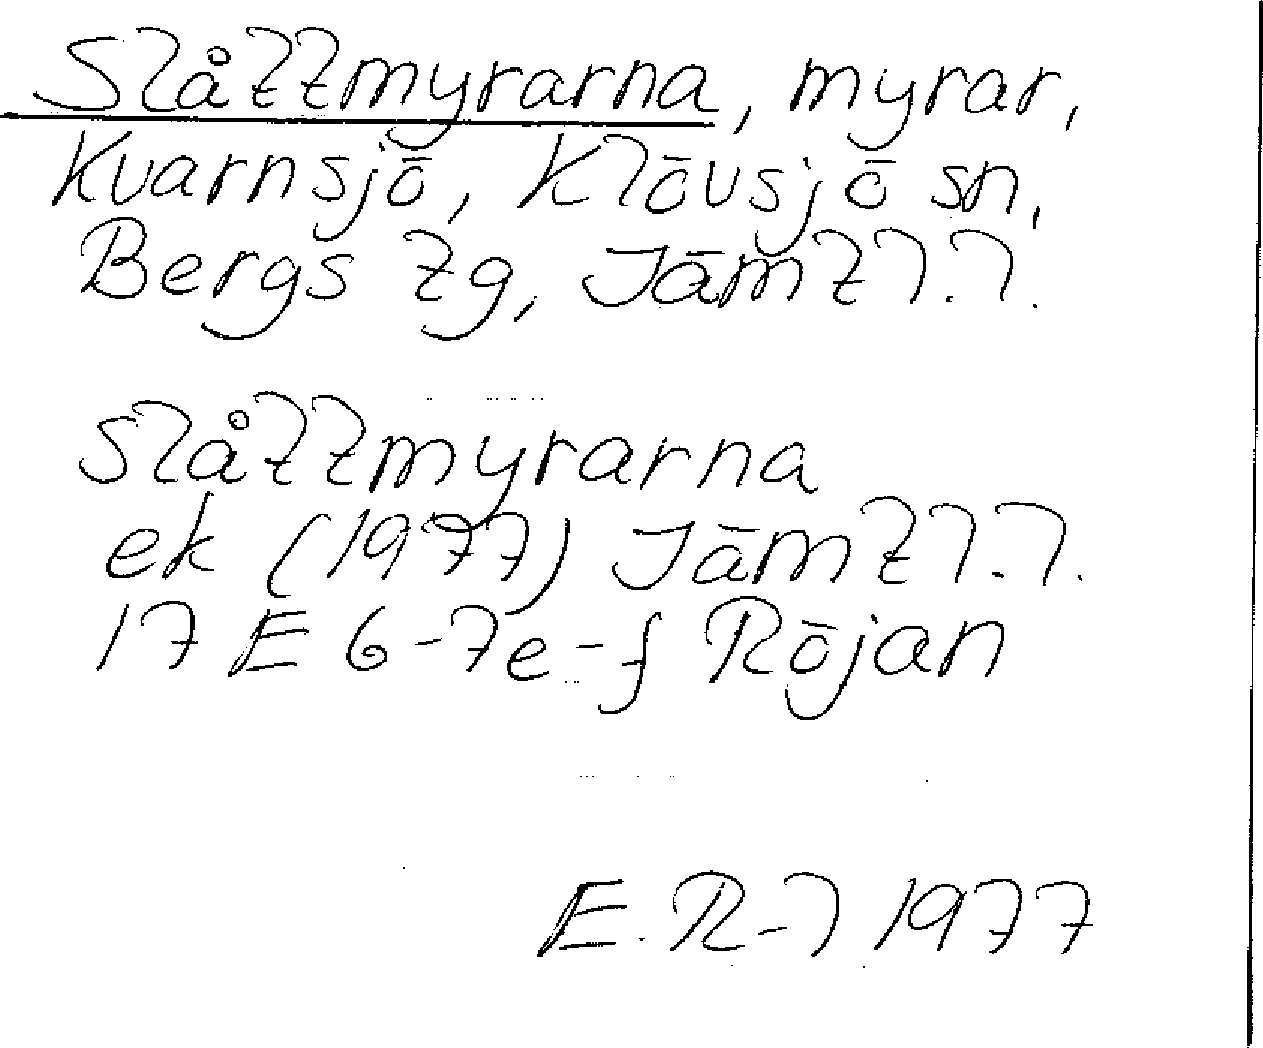 Slåttmyrarna, myrar,
Kvarnsjö, Klövsjö sn,
Bergs tg, Jämtl.l.
Slåttmyrarna
ek (1977) Jämtl.l.
17 E 6-7e-f Röjan
E.R-l 1977